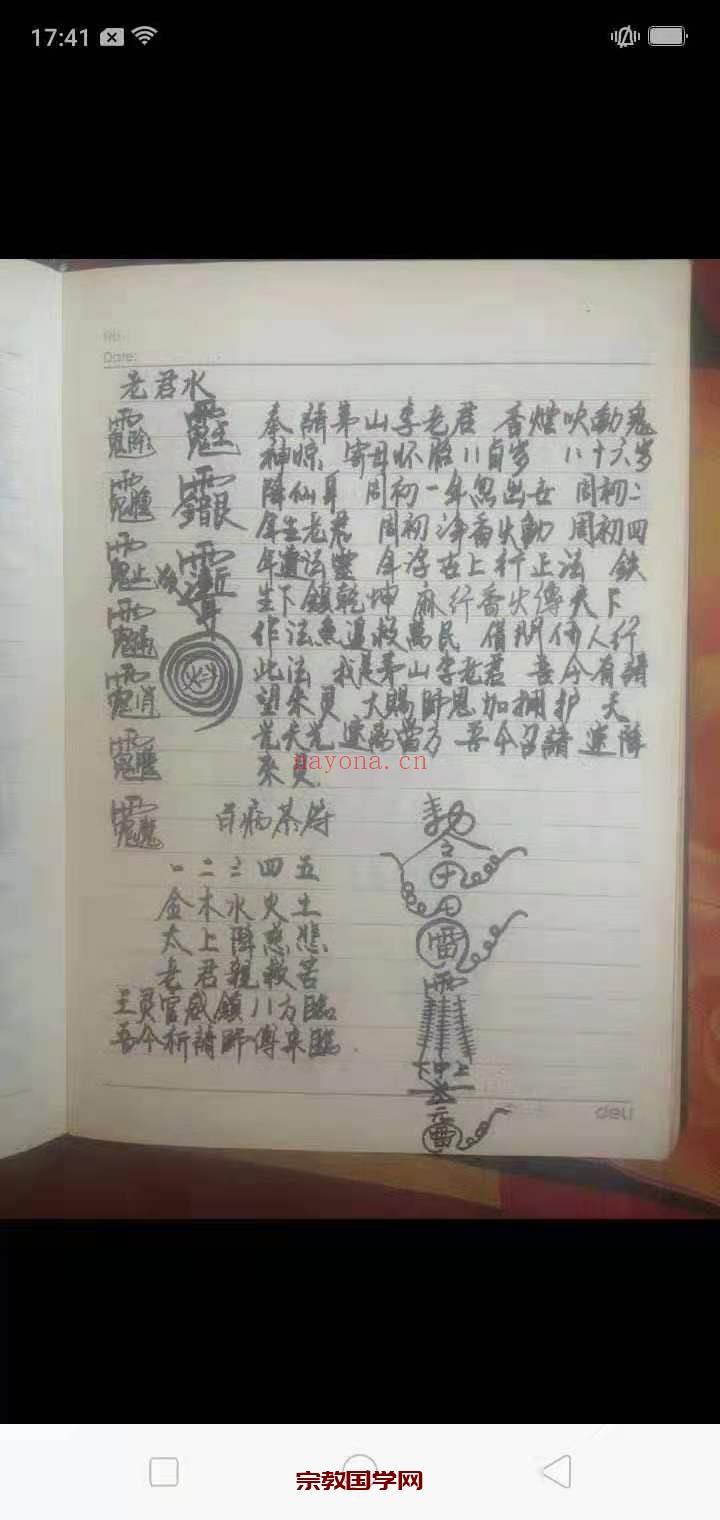 17:41
Date:
老君水
奉請茅山李老君 香煙吹動鬼
神惊 寄母怀胎八百岁 八十六岁
降仙身 周初一年忽出去 周初二
年生老君 周初净香火動 周初四
年遺法靈 年存在上行正法 鉄
生下鎮乾坤 麻行香火傳天下
作法魚追救萬民 借問何人行
此法 我是茅山李老君 吾今有請
望来灵 大賜師恩加拥护 天
光天光速离當方 吾今召請 速降
來灵
nayona.cn
百病茶符
一二三四五
金木水火土
太上降慈悲
老君親救苦
王灵官威鎮八方臨
吾今祈請師傅来臨
勅
令
雷
下中上
元
雷
deli
宗教国学网